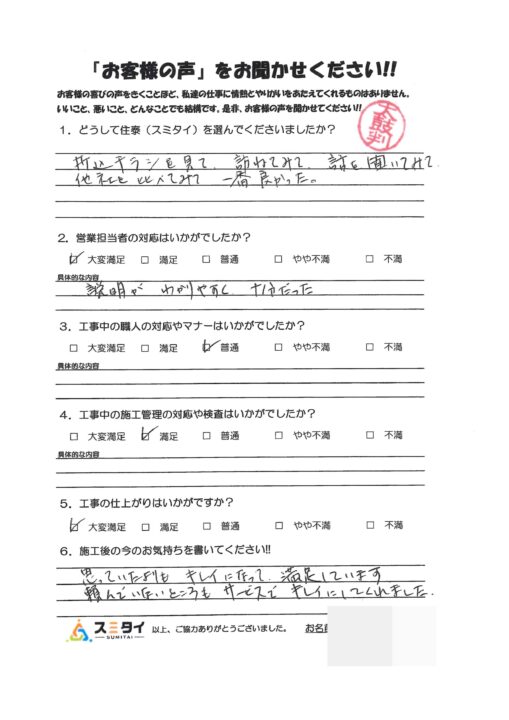 「お客様の声」をお聞かせください!!
お客様の喜びの声をきくことほど、私達の仕事に情熱とやりがいをあたえてくれるものはありません。
いいこと、悪いこと、どんなことでも結構です。是非、お客様の声を聞かせてください!!
太鼓判
1．どうして住泰（スミタイ）を選んでくださいましたか？
折込チラシを見て、訪ねてみて、話を聞いてみて
他社と比べてみて 一番良かった。
2．営業担当者の対応はいかがでしたか？
☑ 大変満足 □ 満足 □ 普通 □ やや不満 □ 不満
具体的な内容
説明が わかりやすく 十分だった
3．工事中の職人の対応やマナーはいかがでしたか？
□ 大変満足 □ 満足 ☑ 普通 □ やや不満 □ 不満
具体的な内容
4．工事中の施工管理の対応や検査はいかがでしたか？
□ 大変満足 ☑ 満足 □ 普通 □ やや不満 □ 不満
具体的な内容
5．工事の仕上がりはいかがですか？
☑ 大変満足 □ 満足 □ 普通 □ やや不満 □ 不満
6．施工後の今のお気持ちを書いてください!!
思っていたよりも キレイになって、満足しています
頼んでいないところも サービスで キレイにしてくれました。
スミタイ SUMITAI 以上、ご協力ありがとうございました。 お名